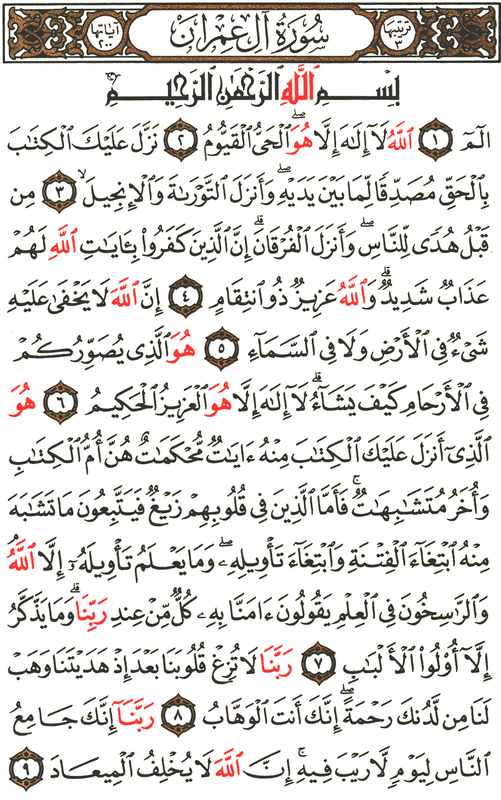 ترتيبها ٣
سُورَةُ آلِ عِمْرَانَ
آياتها ٢٠٠
بِسْمِ ٱللَّهِ ٱلرَّحْمَٰنِ ٱلرَّحِيمِ
الٓمٓ ١ ٱللَّهُ لَآ إِلَٰهَ إِلَّا هُوَ ٱلْحَىُّ ٱلْقَيُّومُ ٢ نَزَّلَ عَلَيْكَ ٱلْكِتَٰبَ
بِٱلْحَقِّ مُصَدِّقًا لِّمَا بَيْنَ يَدَيْهِ وَأَنزَلَ ٱلتَّوْرَىٰةَ وَٱلْإِنجِيلَ ٣ مِن
قَبْلُ هُدًى لِّلنَّاسِ وَأَنزَلَ ٱلْفُرْقَانَ إِنَّ ٱلَّذِينَ كَفَرُوا۟ بِـَٔايَٰتِ ٱللَّهِ لَهُمْ
عَذَابٌ شَدِيدٌ وَٱللَّهُ عَزِيزٌ ذُو ٱنتِقَامٍ ٤ إِنَّ ٱللَّهَ لَا يَخْفَىٰ عَلَيْهِ
شَىْءٌ فِى ٱلْأَرْضِ وَلَا فِى ٱلسَّمَآءِ ٥ هُوَ ٱلَّذِى يُصَوِّرُكُمْ
فِى ٱلْأَرْحَامِ كَيْفَ يَشَآءُ لَآ إِلَٰهَ إِلَّا هُوَ ٱلْعَزِيزُ ٱلْحَكِيمُ ٦ هُوَ
ٱلَّذِىٓ أَنزَلَ عَلَيْكَ ٱلْكِتَٰبَ مِنْهُ ءَايَٰتٌ مُّحْكَمَٰتٌ هُنَّ أُمُّ ٱلْكِتَٰبِ
وَأُخَرُ مُتَشَٰبِهَٰتٌ فَأَمَّا ٱلَّذِينَ فِى قُلُوبِهِمْ زَيْغٌ فَيَتَّبِعُونَ مَا تَشَٰبَهَ
مِنْهُ ٱبْتِغَآءَ ٱلْفِتْنَةِ وَٱبْتِغَآءَ تَأْوِيلِهِۦ وَمَا يَعْلَمُ تَأْوِيلَهُۥٓ إِلَّا ٱللَّهُ
وَٱلرَّٰسِخُونَ فِى ٱلْعِلْمِ يَقُولُونَ ءَامَنَّا بِهِۦ كُلٌّ مِّنْ عِندِ رَبِّنَا وَمَا يَذَّكَّرُ
إِلَّآ أُو۟لُوا۟ ٱلْأَلْبَٰبِ ٧ رَبَّنَا لَا تُزِغْ قُلُوبَنَا بَعْدَ إِذْ هَدَيْتَنَا وَهَبْ
لَنَا مِن لَّدُنكَ رَحْمَةً إِنَّكَ أَنتَ ٱلْوَهَّابُ ٨ رَبَّنَآ إِنَّكَ جَامِعُ
ٱلنَّاسِ لِيَوْمٍ لَّا رَيْبَ فِيهِ إِنَّ ٱللَّهَ لَا يُخْلِفُ ٱلْمِيعَادَ ٩